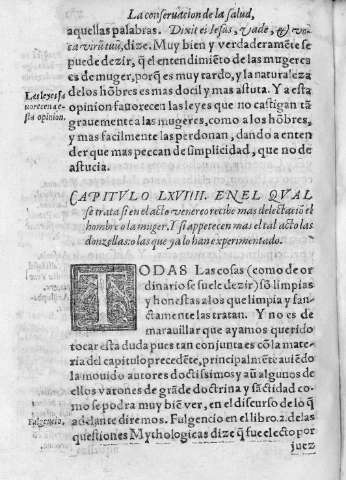 La conseruacion de la salud,
aquellas palabras. Dixit ei Iesus, Vade, & vo-
ca virũ tuũ, dize. Muy bien y verdaderamẽte se
puede dezir, q̃ el entendimiẽto de las mugeres
es de muger, porq̃ es muy tardo, y la naturaleza
de los hõbres es mas docil y mas astuta. Y a esta
Las leyes fa
uorecen a e-
sta opinion.
opinion fauorecen las leyes que no castigan tã
grauemente a las mugeres, como a los hõbres,
y mas facilmente las perdonan, dando a enten
der que mas peccan de simplicidad, que no de
astucia.
CAPITVLO LXVIIII. EN EL QVAL
se trata si en el acto venereo recibe mas delectaciõ el
hombre o la muger. I si appetecen mas el tal acto las
donzellas: o las que ya lo han experimentado.
TODAS Las cosas (como de or
dinario se suele dezir) sõ limpias
y honestas a los que limpia y san-
ctamente las tratan. Y no es de
marauillar que ayamos querido
tocar esta duda pues tan conjunta es cõ la mate-
ria del capitulo precedẽte, principalmẽte auiẽdo
la mouido autores doctissimos y aũ algunos de
ellos varones de grãde doctrina y sãctidad co-
mo se podra muy biẽ ver, en el discurso de lo q̃
Fulgencio.
adelante diremos. Fulgencio en el libro. 2. de las
questiones Mythologicas dize q̃ fue electo por
juez